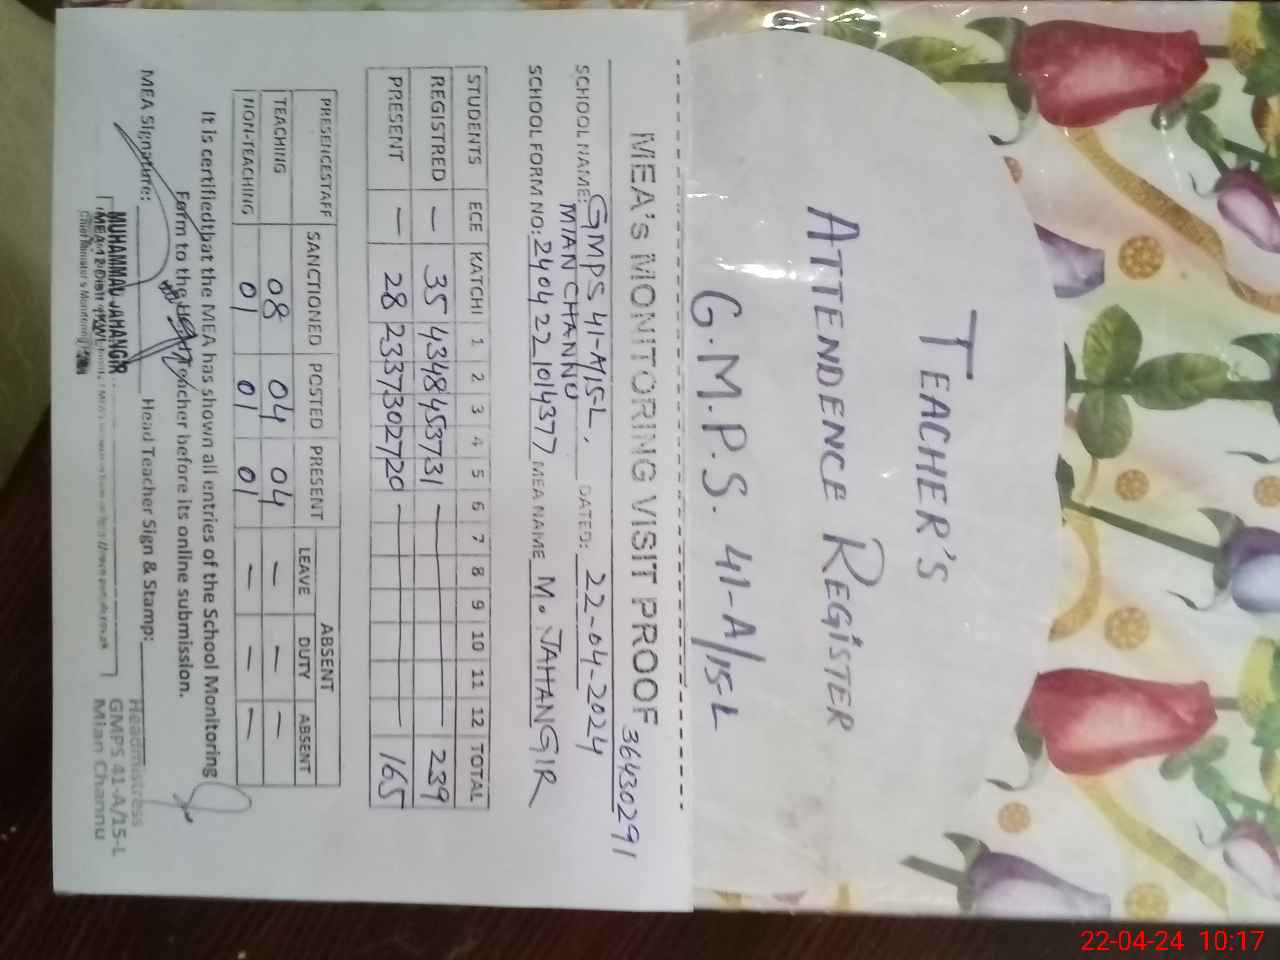 TEACHER'S
ATTENDENCE REGISTER
G.M.P.S. 41-A/15-L
MEA'S MONITORING VISIT PROOF 36430291
SCHOOL NAME: GMPS 41-A/15-L, MIAN CHANNU DATED: 22-04-2024
SCHOOL FORM NO: 2404221014377 MEA NAME M. JAHANGIR
STUDENTS ECE KATCHI 1 2 3 4 5 6 7 8 9 10 11 12 TOTAL
REGISTRED — 35 43 48 45 37 31 — 239
PRESENT — 28 23 37 30 27 20 — 165
PRESENCESTAFF SANCTIONED POSTED PRESENT ABSENT
LEAVE DUTY ABSENT
TEACHING 08 04 04 — — —
NON-TEACHING 01 01 01 — — —
It is certifiedthat the MEA has shown all entries of the School Monitoring
Form to the Head Teacher before its online submission.
MEA Signature: Head Teacher Sign & Stamp:
MUHAMMAD JAHANGIR
Headmistress
GMPS 41-A/15-L
Mian Channu
22-04-24 10:17